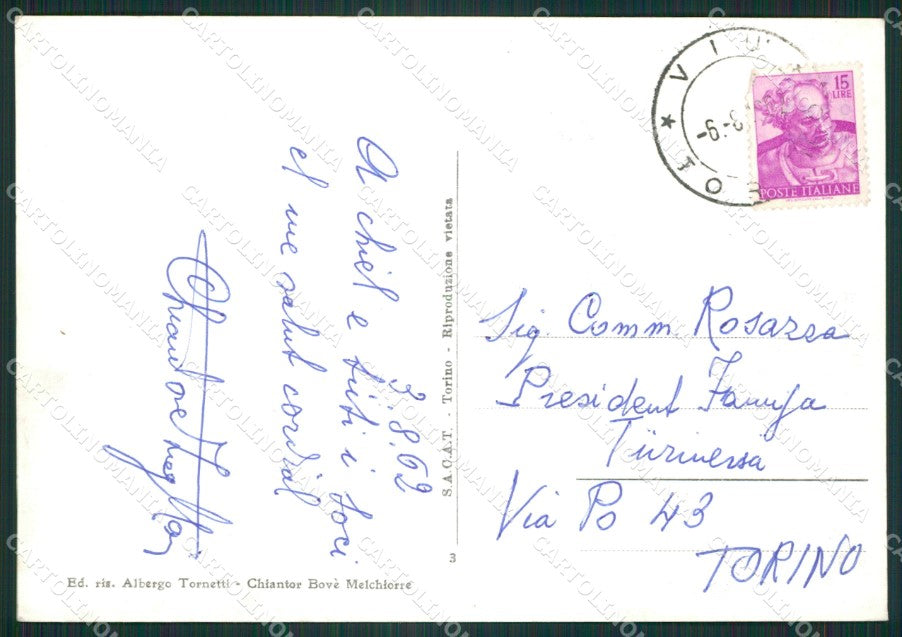 VIU
-6.-8
TO
15
LIRE
POSTE ITALIANE
A chiel e tuti i soci
el me salut cordial
3.8.62
Chiantore
S.A.C.A.T. - Torino - Riproduzione vietata
Sig. Comm Rosazza
President Famija
Türineisa
Via Po 43
TORINO
3
Ed. ris. Albergo Tornetti - Chiantor Bovè Melchiorre
CARTOLINOMANIA